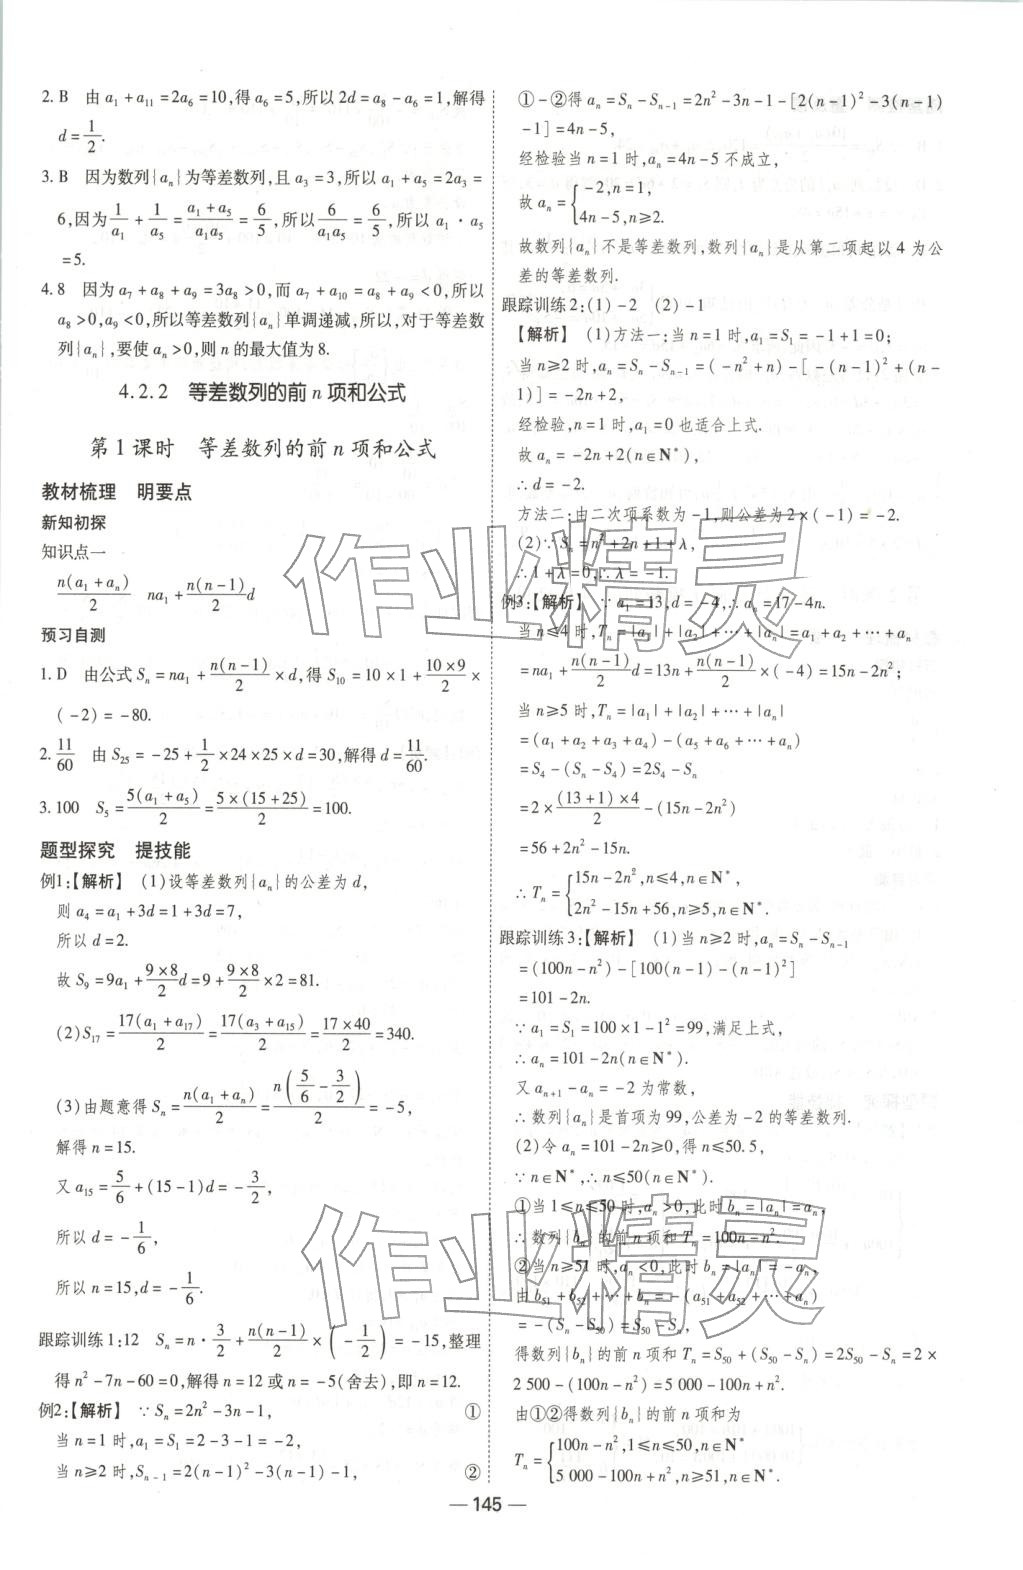 2. B　由 a₁+a₁₁=2a₆=10,得 a₆=5,所以 2d=a₈-a₆=1,解得
d=1/2.
3. B　因为数列{aₙ}为等差数列,且 a₃=3,所以 a₁+a₅=2a₃=
6,因为 1/a₁+1/a₅=(a₁+a₅)/(a₁a₅)=6/5,所以 6/(a₁a₅)=6/5,所以 a₁·a₅
=5.
4. 8　因为 a₇+a₈+a₉=3a₈>0,而 a₇+a₁₀=a₈+a₉<0,所以
a₈>0,a₉<0,所以等差数列{aₙ}单调递减,所以,对于等差数
列{aₙ},要使 aₙ>0,则 n 的最大值为 8.
4.2.2　等差数列的前 n 项和公式
第 1 课时　等差数列的前 n 项和公式
教材梳理　明要点
新知初探
知识点一
n(a₁+aₙ)/2　na₁+n(n-1)/2 d
预习自测
1. D　由公式 Sₙ=na₁+n(n-1)/2×d,得 S₁₀=10×1+(10×9)/2×
(-2)=-80.
2. 11/60　由 S₂₅=-25+1/2×24×25×d=30,解得 d=11/60.
3. 100　S₅=5(a₁+a₅)/2=5×(15+25)/2=100.
题型探究　提技能
例1:【解析】　(1)设等差数列{aₙ}的公差为 d,
则 a₄=a₁+3d=1+3d=7,
所以 d=2.
故 S₉=9a₁+(9×8)/2 d=9+(9×8)/2×2=81.
(2)S₁₇=17(a₁+a₁₇)/2=17(a₃+a₁₅)/2=(17×40)/2=340.
(3)由题意得 Sₙ=n(a₁+aₙ)/2=n(5/6-3/2)/2=-5,
解得 n=15.
又 a₁₅=5/6+(15-1)d=-3/2,
所以 d=-1/6,
所以 n=15,d=-1/6.
跟踪训练1:12　Sₙ=n·3/2+n(n-1)/2×(-1/2)=-15,整理
得 n²-7n-60=0,解得 n=12 或 n=-5(舍去),即 n=12.
例2:【解析】　∵Sₙ=2n²-3n-1,　①
当 n=1 时,a₁=S₁=2-3-1=-2,
当 n≥2 时,Sₙ₋₁=2(n-1)²-3(n-1)-1,　②
①-②得 aₙ=Sₙ-Sₙ₋₁=2n²-3n-1-[2(n-1)²-3(n-1)
-1]=4n-5,
经检验当 n=1 时,aₙ=4n-5 不成立,
故 aₙ={-2,n=1,
4n-5,n≥2.
故数列{aₙ}不是等差数列,数列{aₙ}是从第二项起以 4 为公
差的等差数列.
跟踪训练2:(1)-2　(2)-1
【解析】　(1)方法一:当 n=1 时,a₁=S₁=-1+1=0;
当 n≥2 时,aₙ=Sₙ-Sₙ₋₁=(-n²+n)-[-(n-1)²+(n-
1)]=-2n+2,
经检验,n=1 时,a₁=0 也适合上式.
故 aₙ=-2n+2(n∈N*).
∴d=-2.
方法二:由二次项系数为-1,则公差为 2×(-1)=-2.
(2)∵Sₙ=n²+2n+1+λ,
∴1+λ=0,∴λ=-1.
例3:【解析】　∵a₁=13,d=-4,∴aₙ=17-4n.
当 n≤4 时,Tₙ=|a₁|+|a₂|+…+|aₙ|=a₁+a₂+…+aₙ
=na₁+n(n-1)/2 d=13n+n(n-1)/2×(-4)=15n-2n²;
当 n≥5 时,Tₙ=|a₁|+|a₂|+…+|aₙ|
=(a₁+a₂+a₃+a₄)-(a₅+a₆+…+aₙ)
=S₄-(Sₙ-S₄)=2S₄-Sₙ
=2×(13+1)×4/2-(15n-2n²)
=56+2n²-15n.
∴Tₙ={15n-2n²,n≤4,n∈N*,
2n²-15n+56,n≥5,n∈N*.
跟踪训练3:【解析】　(1)当 n≥2 时,aₙ=Sₙ-Sₙ₋₁
=(100n-n²)-[100(n-1)-(n-1)²]
=101-2n.
∵a₁=S₁=100×1-1²=99,满足上式,
∴aₙ=101-2n(n∈N*).
又 aₙ₊₁-aₙ=-2 为常数,
∴数列{aₙ}是首项为 99,公差为-2 的等差数列.
(2)令 aₙ=101-2n≥0,得 n≤50.5,
∵n∈N*,∴n≤50(n∈N*).
①当 1≤n≤50 时,aₙ>0,此时 bₙ=|aₙ|=aₙ,
∴数列{bₙ}的前 n 项和 Tₙ=100n-n².
②当 n≥51 时,aₙ<0,此时 bₙ=|aₙ|=-aₙ,
由 b₅₁+b₅₂+…+bₙ=-(a₅₁+a₅₂+…+aₙ)
=-(Sₙ-S₅₀)=S₅₀-Sₙ,
得数列{bₙ}的前 n 项和 Tₙ=S₅₀+(S₅₀-Sₙ)=2S₅₀-Sₙ=2×
2 500-(100n-n²)=5 000-100n+n².
由①②得数列{bₙ}的前 n 项和为
Tₙ={100n-n²,1≤n≤50,n∈N*,
5 000-100n+n²,n≥51,n∈N*.
— 145 —
作业精灵
作业精灵